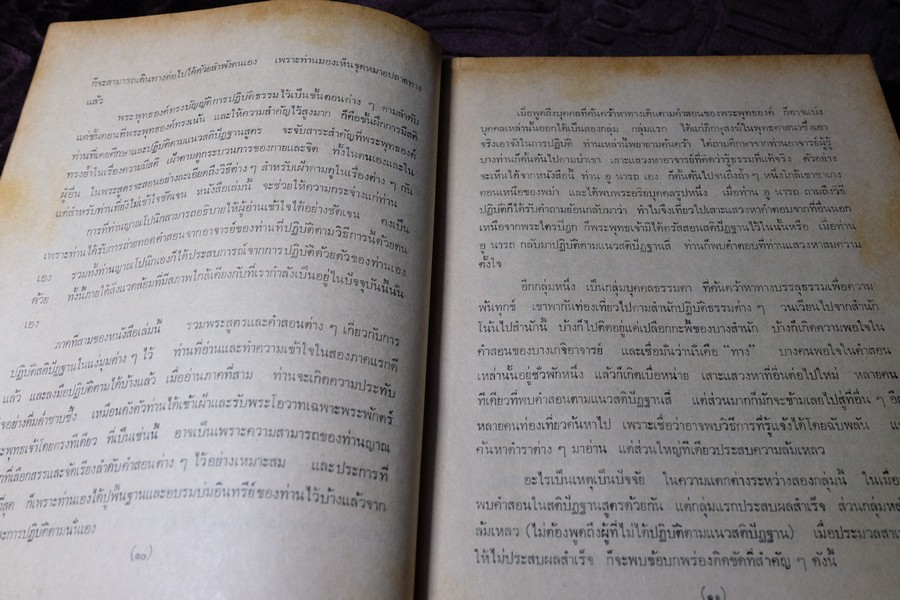 ก็จะสามารถเดินทางต่อไปได้ด้วยลำพังตนเอง เพราะท่านมองเห็นจุดหมายปลายทาง
แล้ว
พระพุทธองค์ทรงบัญญัติการปฏิบัติธรรมไว้เป็นขั้นตอนต่าง ๆ ตามลำดับ
แต่ขั้นตอนที่พระพุทธองค์ทรงเน้น และให้ความสำคัญไว้สูงมาก ก็คือขั้นฝึกการมีสติ
ท่านที่เคยศึกษาและปฏิบัติตามแนวสติปัฏฐานสูตร จะจับสาระสำคัญที่พระพุทธองค์
ทรงย้ำในเรื่องความมีสติ เฝ้าตามดูกระบวนการของกายและจิต ทั้งในตนเองและใน
ผู้อื่น ในพระสูตรจะสอนอย่างละเอียดถึงวิธีต่าง ๆ สำหรับเฝ้าตามดูในเรื่องต่าง ๆ กัน
แต่สำหรับท่านที่ยังไม่เข้าใจชัดเจน หนังสือเล่มนี้ จะช่วยให้ความกระจ่างแก่ท่าน
การที่ท่านญาณโปนิกสามารถอธิบายให้ผู้อ่านเข้าใจได้อย่างชัดเจน คงเป็น
เพราะท่านได้รับการถ่ายทอดคำสอนจากอาจารย์ของท่านที่ปฏิบัติตามวิธีการนี้ด้วยตน
เอง รวมทั้งท่านญาณโปนิกเองก็ได้ประสบการณ์จากการปฏิบัติด้วยตัวของท่านเอง
ด้วย ทั้งนี้ภายใต้สิ่งแวดล้อมที่มีสภาพใกล้เคียงกับที่เรากำลังเป็นอยู่ในปัจจุบันนี้นั่น
เอง
ภาคที่สามของหนังสือเล่มนี้ รวมพระสูตรและคำสอนต่าง ๆ เกี่ยวกับการ
ปฏิบัติสติปัฏฐานในแง่มุมต่าง ๆ ไว้ ท่านที่อ่านและทำความเข้าใจในสองภาคแรกดี
แล้ว และลงมือปฏิบัติตามได้บ้างแล้ว เมื่ออ่านภาคที่สาม ท่านจะเกิดความประทับ
ใจอย่างดื่มด่ำซาบซึ้ง เหมือนดังตัวท่านได้เข้าเฝ้าและรับพระโอวาทเฉพาะพระพักตร์
พระพุทธเจ้าโดยตรงทีเดียว ที่เป็นเช่นนี้ อาจเป็นเพราะความสามารถของท่านญาณ
ที่เลือกสรรและจัดเรียงลำดับคำสอนต่าง ๆ ไว้อย่างเหมาะสม และประการที่
ที่สุด ก็เพราะท่านเองได้ปูพื้นฐานและอบรมบ่มอินทรีย์ของท่านไว้บ้างแล้วจาก
การปฏิบัติตามนั่นเอง
(๑๐)
เมื่อพูดถึงบุคคลที่ค้นคว้าหาทางเดินตามคำสอนของพระพุทธองค์ ก็อาจแบ่ง
บุคคลเหล่านั้นออกได้เป็นสองกลุ่ม กลุ่มแรก ได้แก่ภิกษุสงฆ์ในพุทธศาสนาซึ่งเอา
จริงเอาจังในการปฏิบัติ ท่านเหล่านี้พยายามค้นคว้า ไต่ถามศึกษาจากท่านอาจารย์ผู้รู้
บางท่านก็ดั้นด้นไปตามป่าเขา เสาะแสวงหาอาจารย์ที่คิดว่ารู้ธรรมที่แท้จริง ตัวอย่าง
จะเห็นได้จากหนังสือนี้ ท่าน อู นารถ เอง ก็ดั้นด้นไปจนถึงถ้ำ ๆ หนึ่งใกล้เขาซาเกง
ตอนเหนือของพม่า และได้พบพระอริยบุคคลรูปหนึ่ง เมื่อท่าน อู นารถ ถามถึงวิธี
ปฏิบัติก็ได้รับคำถามย้อนกลับมาว่า ทำไมจึงเที่ยวไปเสาะแสวงหาคำตอบจากที่อื่นนอก
เหนือจากพระไตรปิฎก ก็พระพุทธเจ้ามิได้ตรัสสอนสติปัฏฐานสูตรไว้ในนั้นหรือ เมื่อท่าน
อู นารถ กลับมาปฏิบัติตามแนวสติปัฏฐานสี่ ท่านก็พบคำตอบที่ท่านแสวงหาสมความ
ตั้งใจ
อีกกลุ่มหนึ่ง เป็นกลุ่มบุคคลธรรมดา ที่ค้นคว้าหาทางบรรลุธรรมเพื่อความ
พ้นทุกข์ เขาพากันท่องเที่ยวไปตามสำนักปฏิบัติธรรมต่าง ๆ วนเวียนไปจากสำนัก
โน้นไปสำนักนี้ บ้างก็ไปติดอยู่แค่เปลือกกะพี้ของบางสำนัก บ้างก็เกิดความพอใจใน
คำสอนของบางเกจิอาจารย์ และเชื่อมั่นว่านั่นคือ "ทาง" บางคนพอใจในคำสอน
เหล่านั้นอยู่ชั่วพักหนึ่ง แล้วก็เกิดเบื่อหน่าย เสาะแสวงหาที่อื่นต่อไปใหม่ หลายคน
ทีเดียวที่พบคำสอนตามแนวสติปัฏฐานสี่ แต่ส่วนมากก็มักจะข้ามเลยไปสู่ที่อื่น ๆ
หลายคนท่องเที่ยวค้นหาไป เพราะเชื่อว่าอาจพบวิธีการที่รู้แจ้งได้โดยฉับพลัน
ค้นหาตำราต่าง ๆ มาอ่าน แต่ส่วนใหญ่ทีเดียวประสบความล้มเหลว
อะไรเป็นเหตุเป็นปัจจัย ในความแตกต่างระหว่างสองกลุ่มนี้ ในเมื่อ
พบคำสอนในสติปัฏฐานสูตรด้วยกัน แต่กลุ่มแรกประสบผลสำเร็จ ส่วนกลุ่มหลัง
ล้มเหลว (ไม่ต้องพูดถึงผู้ที่ไม่ได้ปฏิบัติตามแนวสติปัฏฐาน) เมื่อประมวลสาเหตุ
ให้ไม่ประสบผลสำเร็จ ก็จะพบข้อบกพร่องกิดขัดที่สำคัญ ๆ ดังนี้
(๑๑)